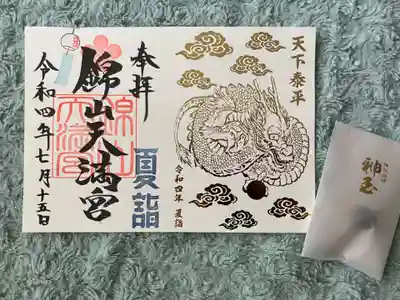 天下泰平
令和四年 夏詣
奉拝
夏詣
錦山天満宮
令和四年七月十五日
神玉